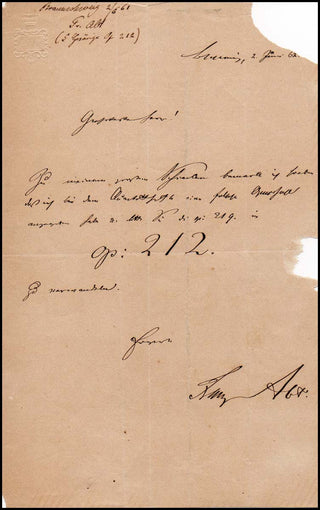 Braunschweig 2/6 62
Fr. Abt
(5 Gesänge Op 212)
2. Juni 62.
Geehrter Herr!
Zu meinem Schreiben bemerke ich
daß ich bei dem eine falsche Opuszahl
angegeben habe u. Sie die op: 219. in
Op: 212.
zu verwandeln.
Franz Abt.